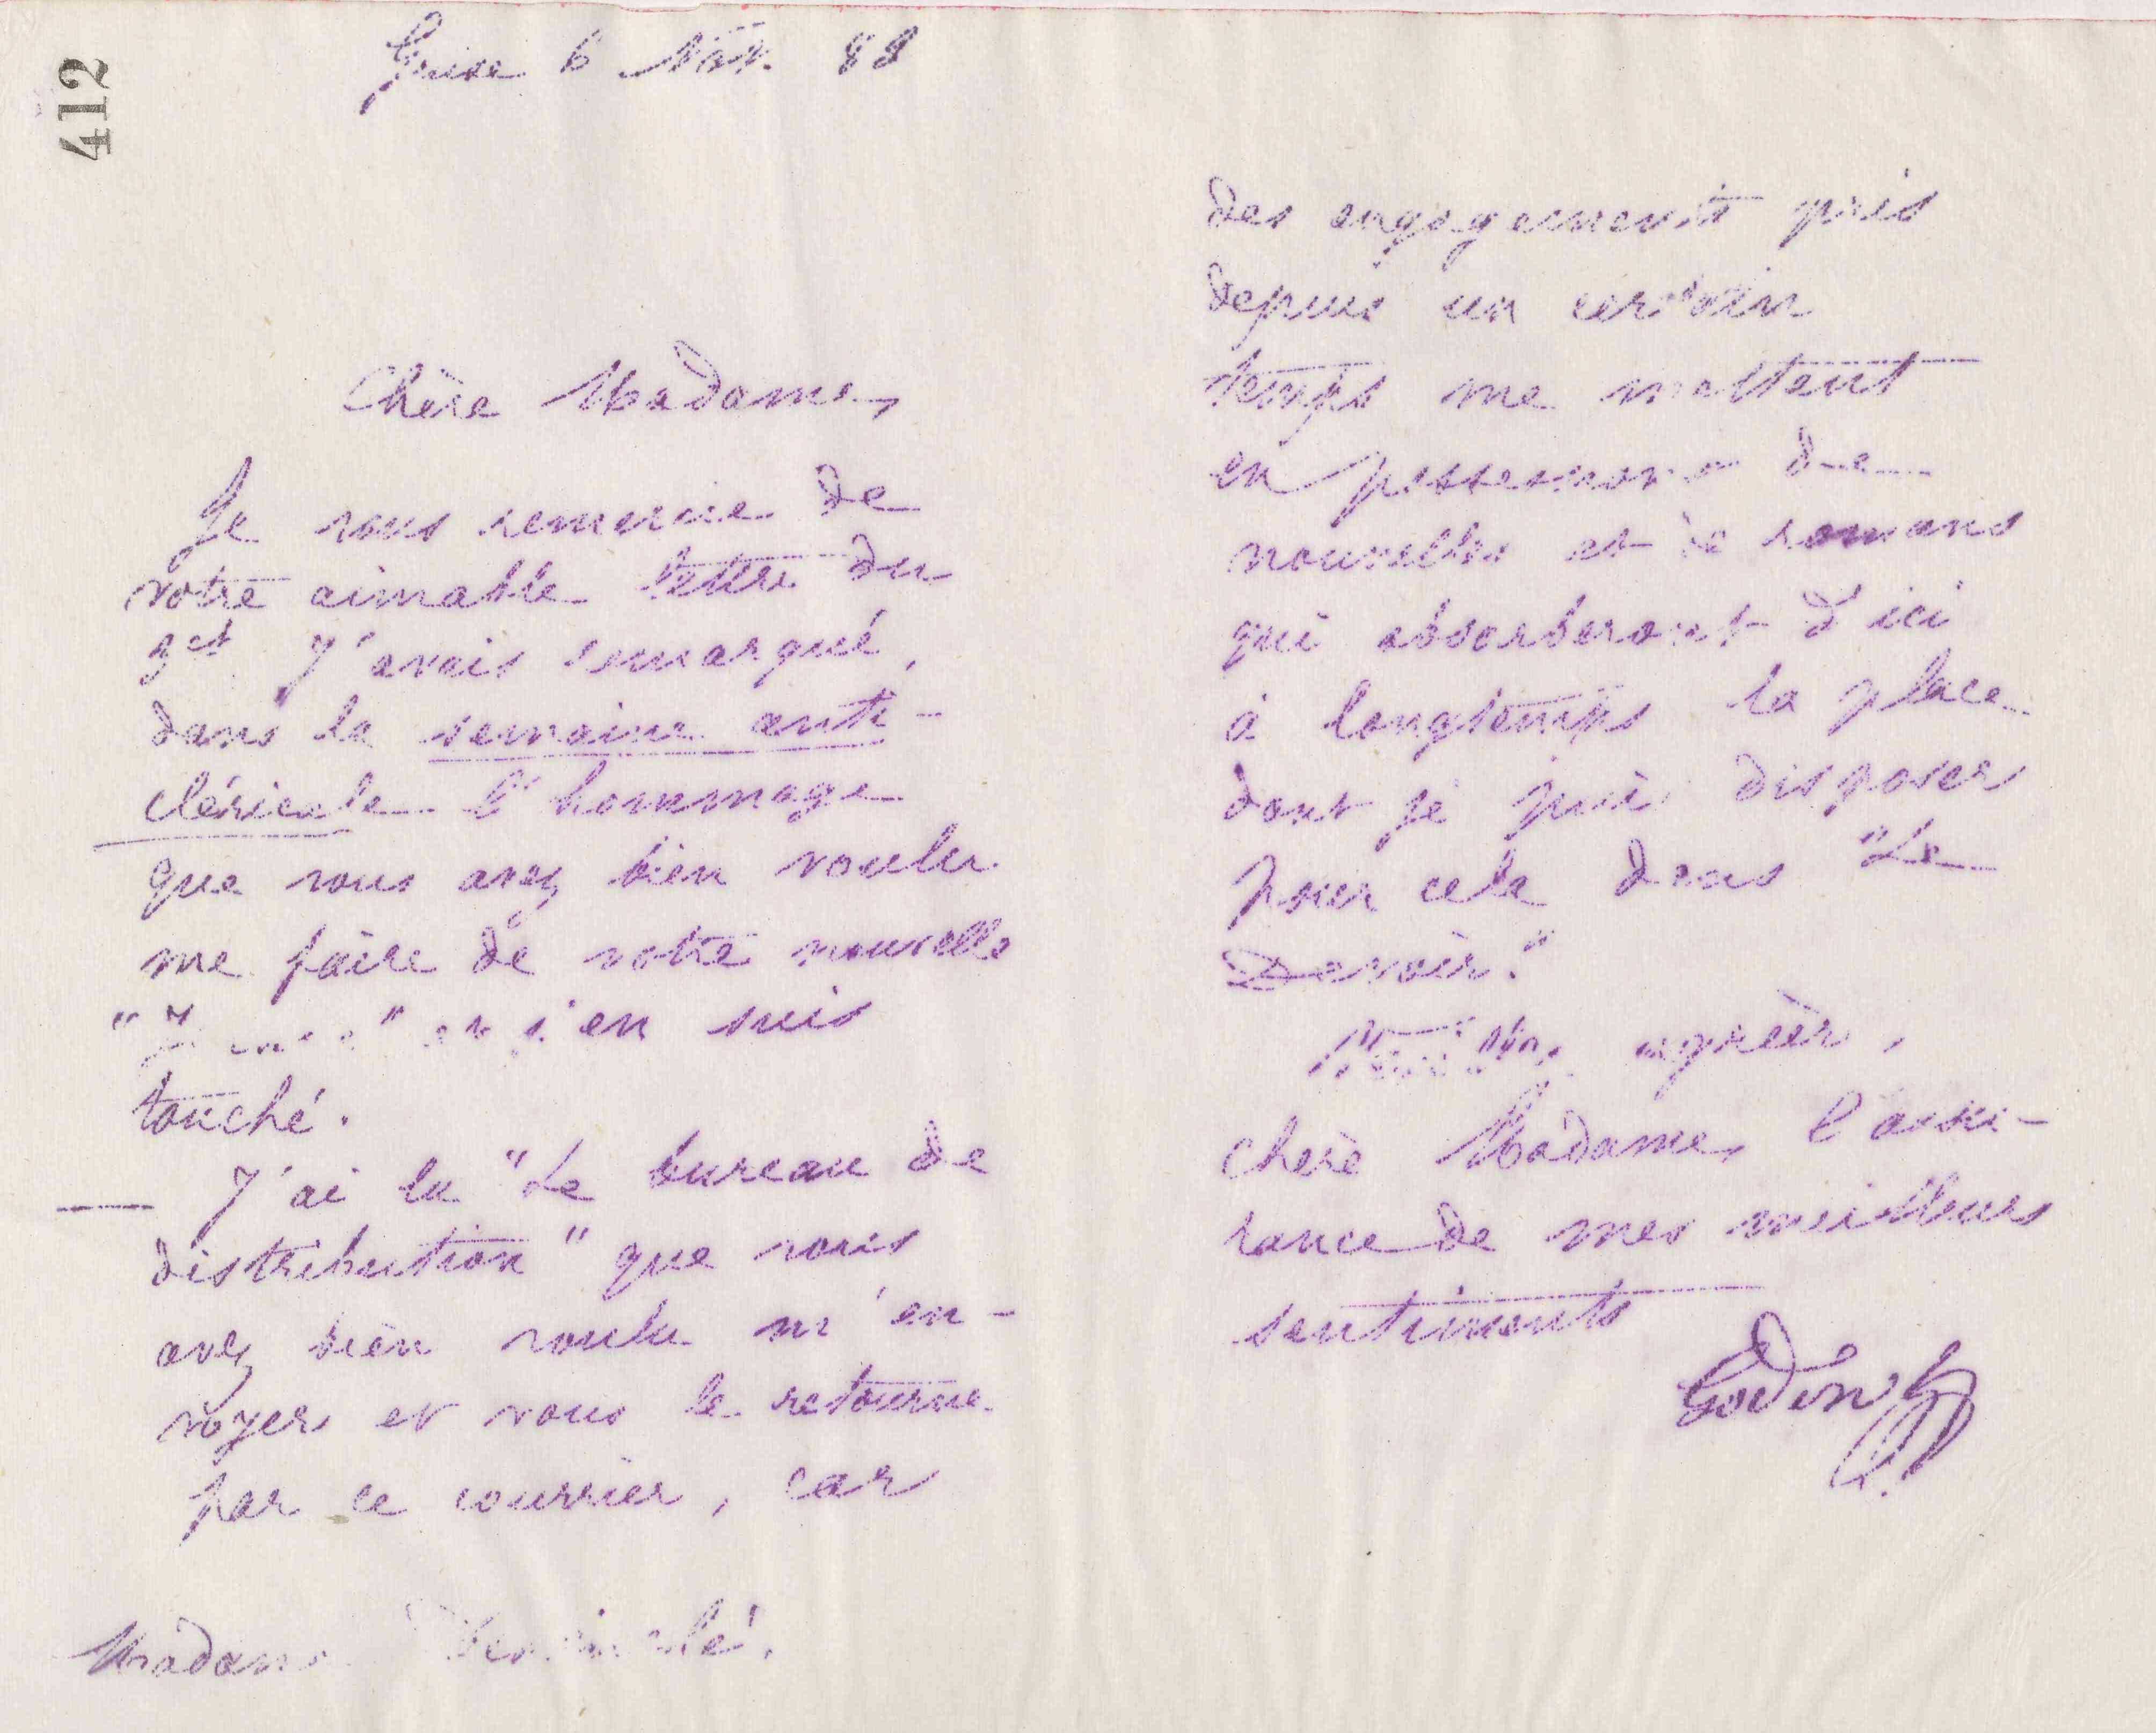 412
Guise 6 Nov. 88
Chère Madame,
Je vous remercie de
votre aimable lettre du
3 ct J'avais remarqué,
dans la semaine anti-
cléricale l'hommage
que vous avez bien voulu
me faire de votre nouvelle
j'en suis
touché.
J'ai lu "Le bureau de
distribution" que vous
avez bien voulu m'en-
voyer et vous le retourne
par ce courrier, car
Madame
des engagements pris
depuis un certain
temps me mettent
en possession de
nouvelles et de romans
qui absorberont d'ici
à longtemps la place
dont je puis disposer
pour cela dans "Le
Devoir."
Veuillez agréer,
chère Madame, l'assu-
rance de mes meilleurs
sentiments
Godin